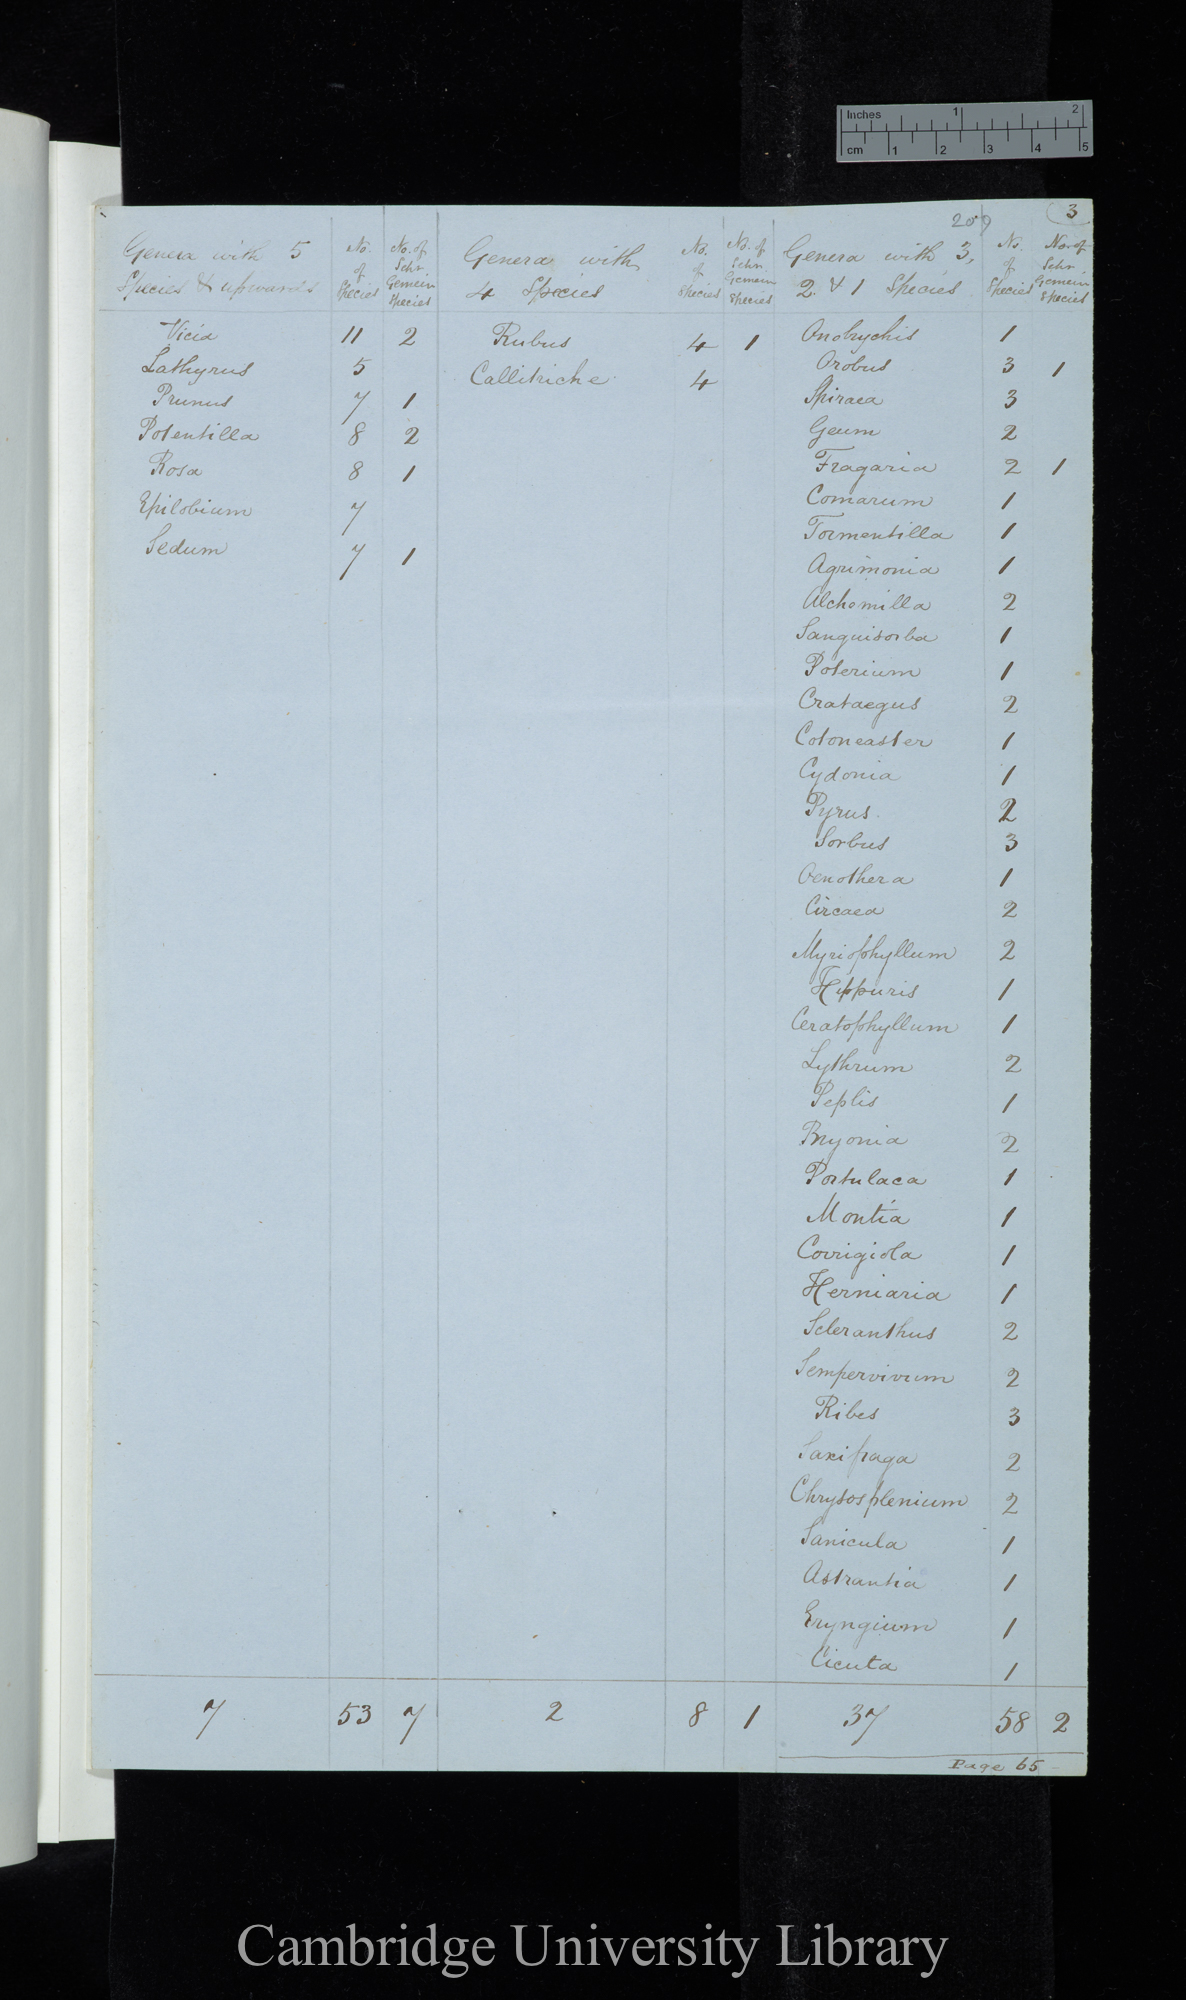 Inches 1 2
cm 1 2 3 4 5
209 3
Genera with 5 Species & upwards | No. of Species | No. of Schr. Gemein Species | Genera with 4 Species | No. of Species | No. of Schr. Gemein Species | Genera with 3, 2 & 1 Species | No. of Species | No. of Schr. Gemein Species
Vicia 11 2
Lathyrus 5
Prunus 7 1
Potentilla 8 2
Rosa 8 1
Epilobium 7
Sedum 7 1
7 53 7
Rubus 4 1
Callitriche 4
2 8 1
Onobrychis 1
Orobus 3 1
Spiraea 3
Geum 2
Fragaria 2 1
Comarum 1
Tormentilla 1
Agrimonia 1
Alchemilla 2
Sanguisorba 1
Poterium 1
Crataegus 2
Cotoneaster 1
Cydonia 1
Pyrus 2
Sorbus 3
Oenothera 1
Circaea 2
Myriophyllum 2
Hippuris 1
Ceratophyllum 1
Lythrum 2
Peplis 1
Bryonia 2
Portulaca 1
Montia 1
Corrigiola 1
Herniaria 1
Scleranthus 2
Sempervivum 2
Ribes 3
Saxifraga 2
Chrysosplenium 2
Sanicula 1
Astrantia 1
Eryngium 1
Cicuta 1
37 58 2
Page 65
Cambridge University Library